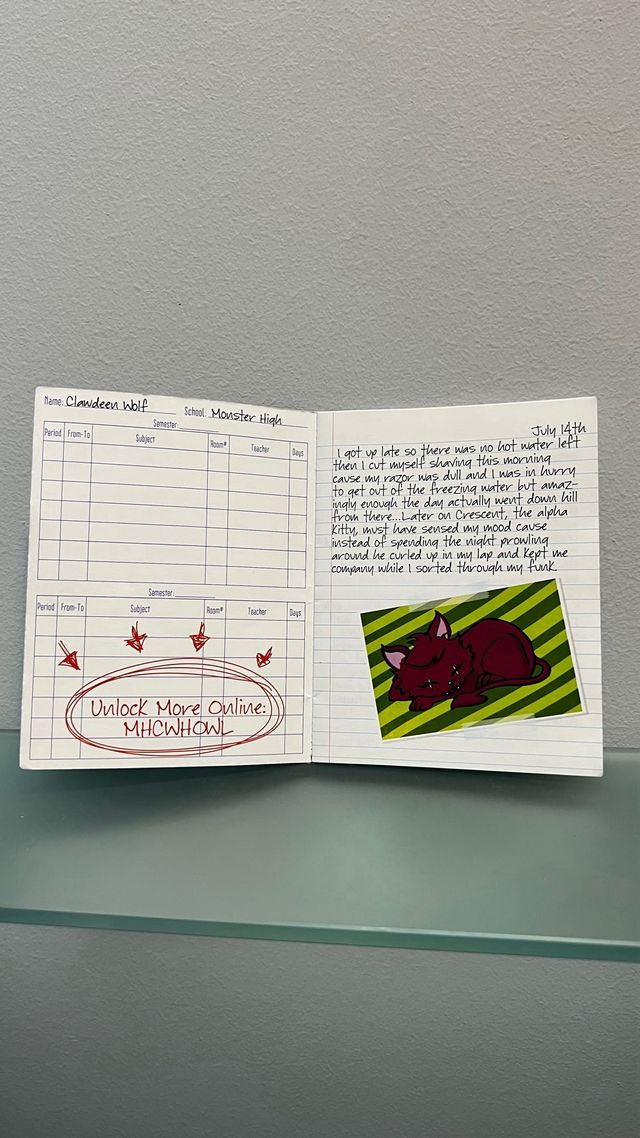 Name: Clawdeen Wolf School: Monster High
Semester:
Period From-To Subject Room# Teacher Days
Semester:
Period From-To Subject Room# Teacher Days
Unlock More Online:
MHCWHOWL
July 14th
I got up late so there was no hot water left
then I cut myself shaving this morning
cause my razor was dull and I was in hurry
to get out of the freezing water but amaz-
ingly enough the day actually went down hill
from there...Later on Crescent, the alpha
kitty, must have sensed my mood cause
instead of spending the night prowling
around he curled up in my lap and kept me
company while I sorted through my funk.